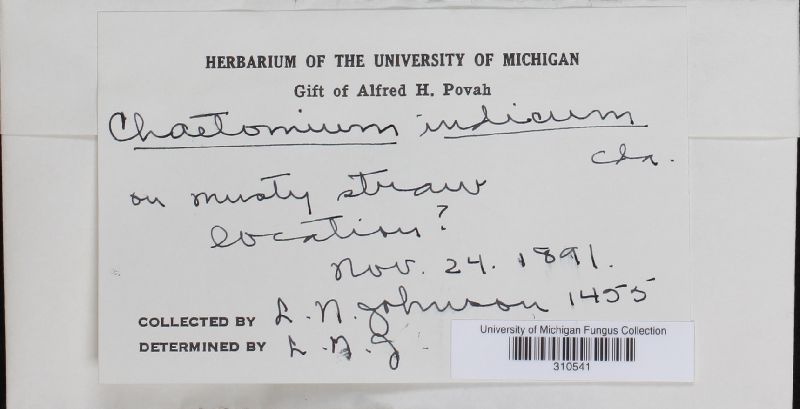 HERBARIUM OF THE UNIVERSITY OF MICHIGAN
Gift of Alfred H. Povah
Chaetomium indicum
Cda.
on musty straw
location?
Nov. 24. 1891.
COLLECTED BY L. N. Johnson 1455
DETERMINED BY L. N. J.
University of Michigan Fungus Collection
310541